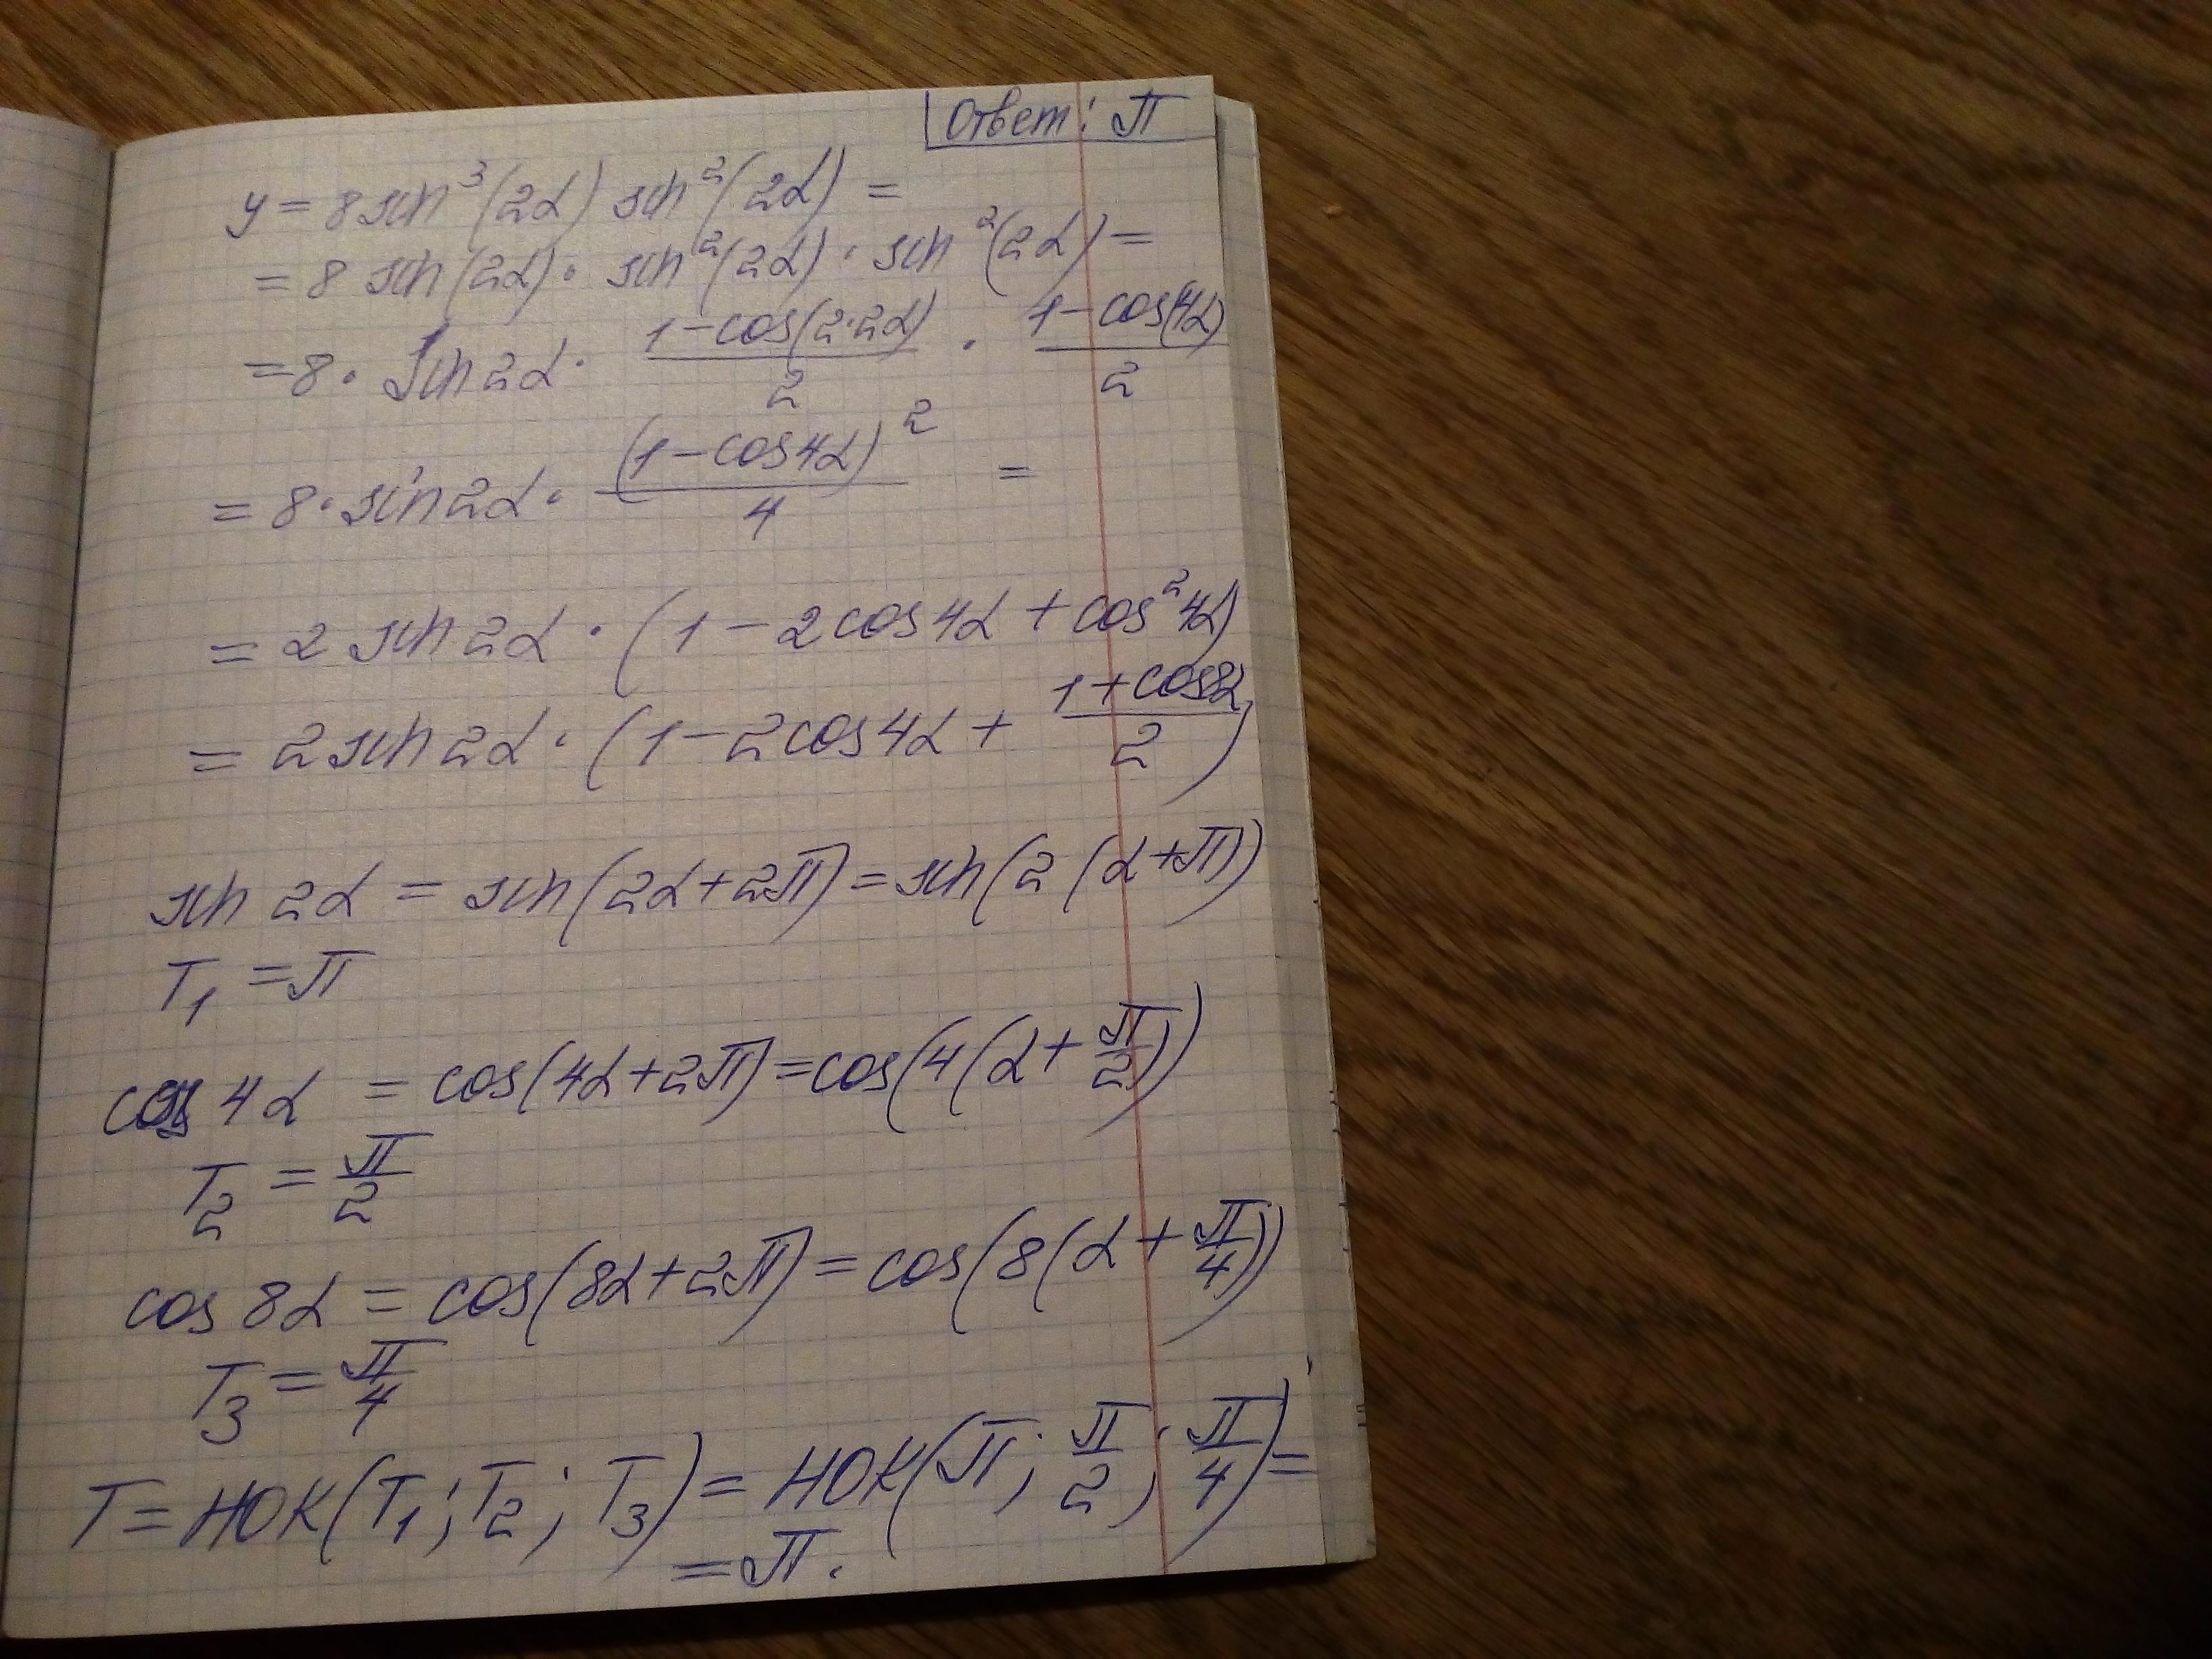 Ответ: π
y = 8 sin³(2α) sin²(2α) =
= 8 sin(2α) · sin²(2α) · sin²(2α) =
= 8 · sin 2α · (1 − cos(2·2α))/2 · (1 − cos(4α))/2
= 8 · sin 2α · (1 − cos 4α)²/4 =
= 2 sin 2α · (1 − 2cos 4α + cos² 4α)
= 2 sin 2α · (1 − 2cos 4α + (1 + cos 8α)/2)
sin 2α = sin(2α + 2π) = sin(2(α + π))
T₁ = π
cos 4α = cos(4α + 2π) = cos(4(α + π/2))
T₂ = π/2
cos 8α = cos(8α + 2π) = cos(8(α + π/4))
T₃ = π/4
T = НОК(T₁; T₂; T₃) = НОК(π; π/2; π/4) =
= π.